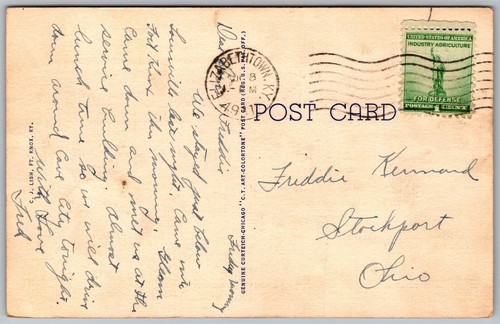 Friday morning
Dear Freddie
We stayed just below
Louisville last night. Came into
Fort Knox this morning. Gleam
Came down and met us at the
service building. Almost
lunch time so we will drive
down around Cave City tonight.
With Love
Fred
J. C. LISH, FT. KNOX, KY.
GENUINE CURTEICH-CHICAGO "C. T. ART-COLORTONE" POST CARD (REG. U. S. PAT. OFF.)
ELIZABETHTOWN, KY.
8
POST CARD
UNITED STATES OF AMERICA
INDUSTRY AGRICULTURE
FOR DEFENSE
POSTAGE 1 CENT
Freddie Kennard
Stockport
Ohio